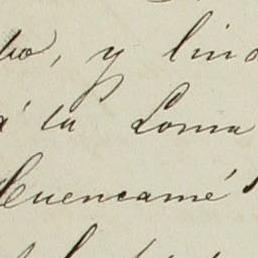 y lind
á la Loma
Cuencamé